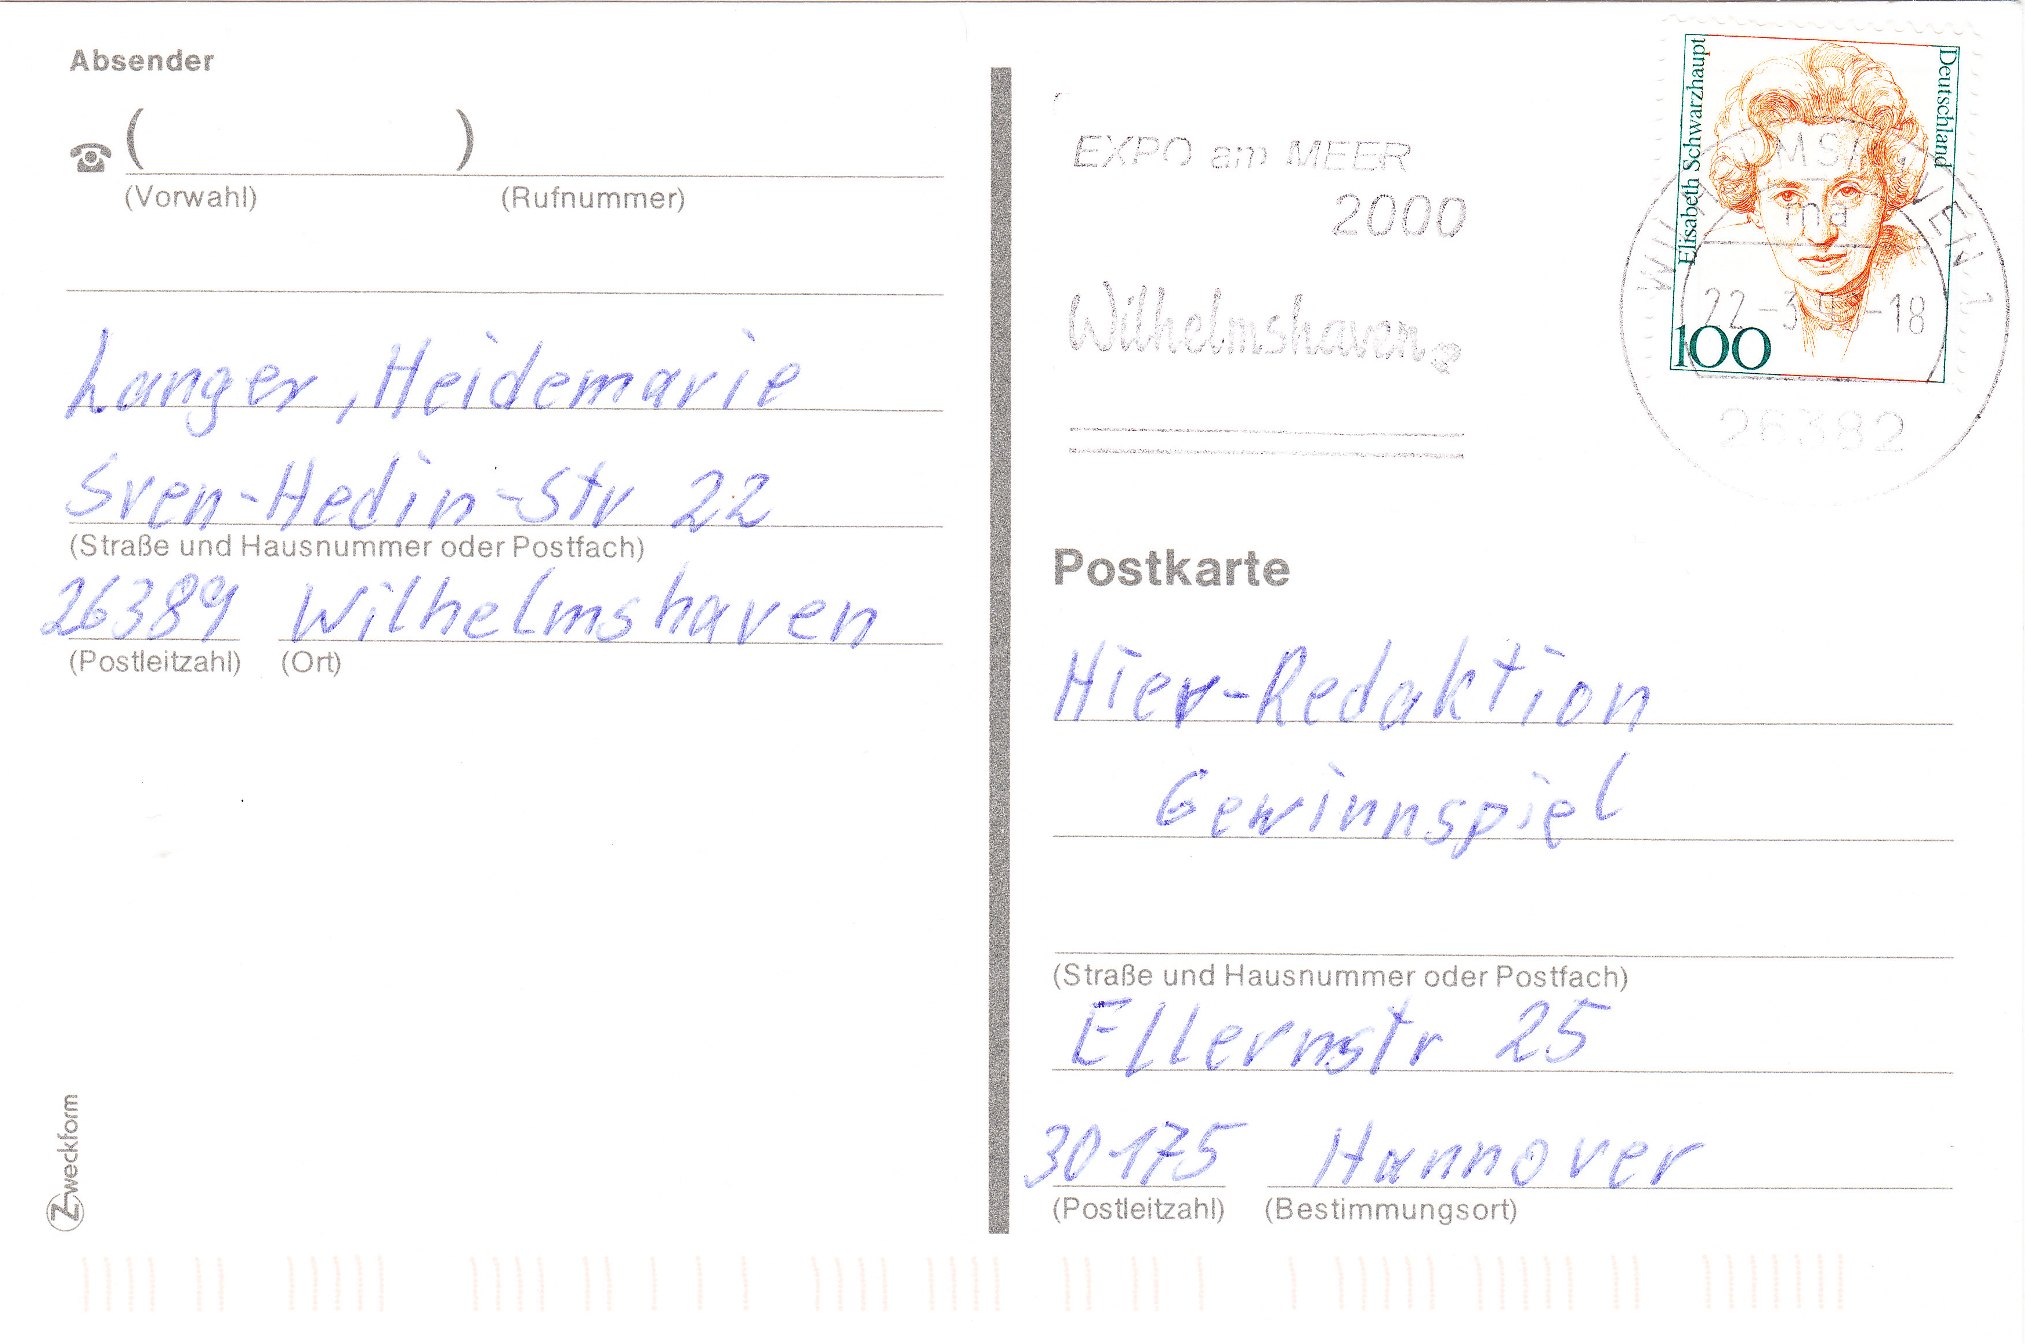 Absender
( )
(Vorwahl) (Rufnummer)
Langer, Heidemarie
Sven-Hedin-Str 22
(Straße und Hausnummer oder Postfach)
26389 Wilhelmshaven
(Postleitzahl) (Ort)
Zweckform
EXPO am MEER
2000
Wilhelmshaven
Elisabeth Schwarzhaupt
Deutschland
100
22-3 -18
26382
Postkarte
Hier-Redaktion
Gewinnspiel
(Straße und Hausnummer oder Postfach)
Ellernstr 25
30175 Hannover
(Postleitzahl) (Bestimmungsort)